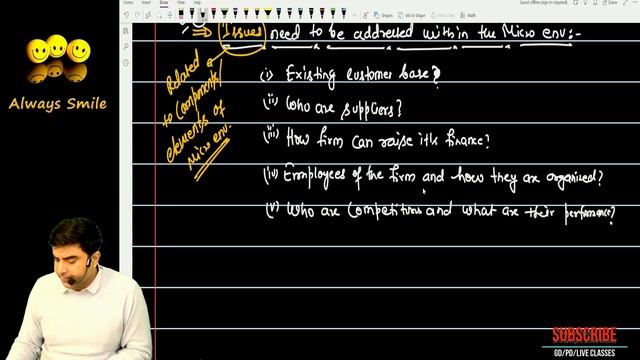 Insert
Draw
View
Saved offline (sign in required)
⇒ Issues need to be addressed within the Micro env:-
Related
to Components/
elements of
Micro env.
(i) Existing customer base?
(ii) Who are suppliers?
(iii) How firm can raise its finance?
(iv) Employees of the firm and how they are organised?
(v) Who are Competitors and what are their performance?
Always Smile
SUBSCRIBE
GD/PD/LIVE CLASSES